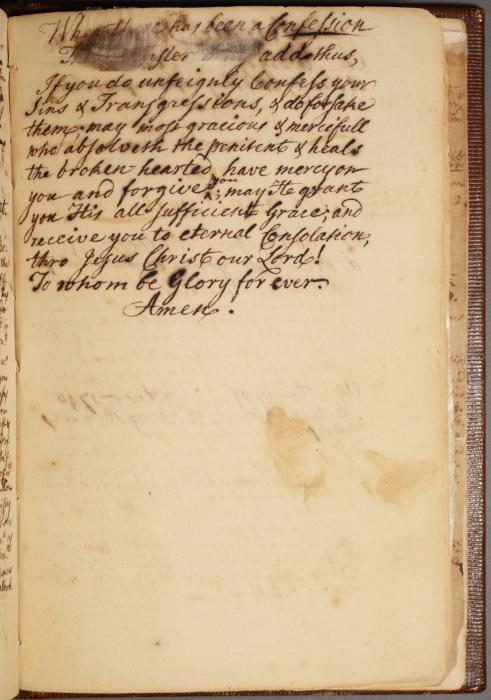 When there has been a Confession
The Minister may add thus,
If you do unfeignly Confess your
Sins & Transgressions, & do forsake
them; may most gracious & mercifull
who absolveth the penitent & heals
the broken-hearted, have mercy on
you and forgive you; may He grant
you His all sufficient Grace; and
receive you to eternal Consolation,
thro Jesus Christ our Lord!
To whom be Glory for ever.
Amen.